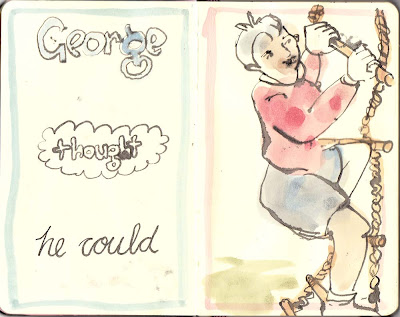 George
thought
he could